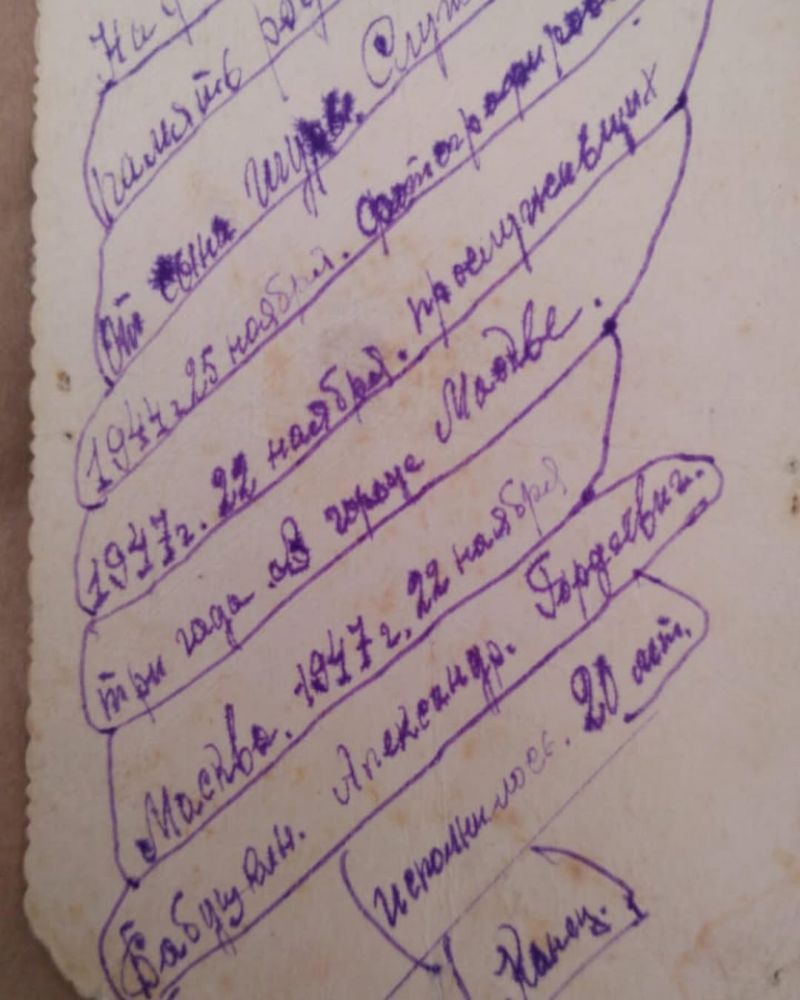 На
память
от сына Шуры. Служ
1944г 25 ноября. фотографиров
1947г. 22 ноября. прослуживших
три года в городе Москве.
Москва. 1947 г. 22 ноября
Александр. Гордеевич.
исполнилось. 20 лет.
Канец.